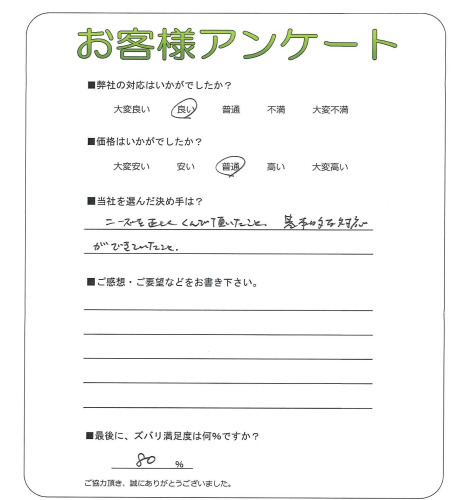 お客様アンケート
■弊社の対応はいかがでしたか？
大変良い 良い 普通 不満 大変不満
■価格はいかがでしたか？
大変安い 安い 普通 高い 大変高い
■当社を選んだ決め手は？
ニーズを正しくくんで頂いたこと、基本的な対応
ができていたこと。
■ご感想・ご要望などをお書き下さい。
■最後に、ズバリ満足度は何%ですか？
80 %
ご協力頂き、誠にありがとうございました。